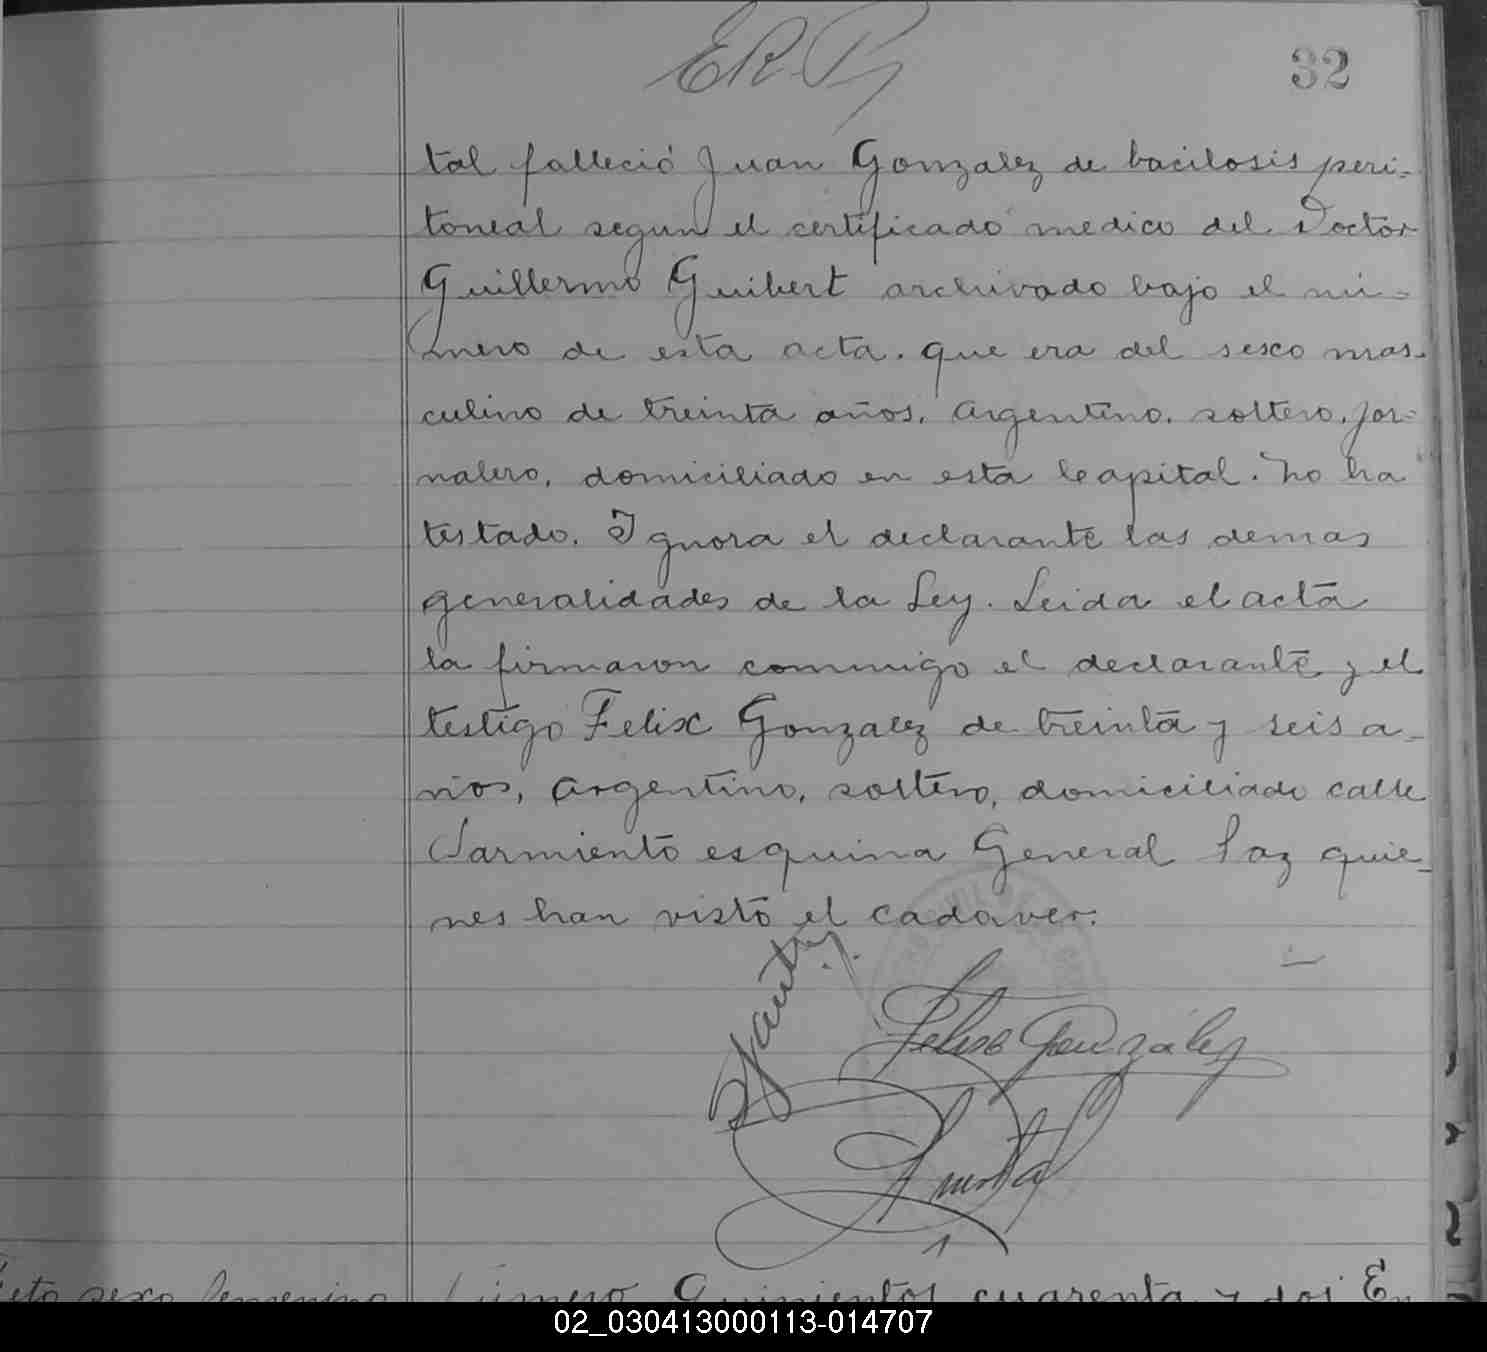 32
tal falleció Juan Gonzalez de bacilosis peri-
toneal segun el certificado medico del Doctor
Guillermo Guibert archivado bajo el nú-
mero de esta acta. que era del sexo mas-
culino de treinta años, argentino, soltero, jor-
nalero, domiciliado en esta Capital. No ha
testado. Ignora el declarante las demas
generalidades de la Ley. Leida el acta
la firmaron conmigo el declarante y el
testigo Felix Gonzalez de treinta y seis a-
ños, argentino, soltero, domiciliado calle
Sarmiento esquina General Paz quie-
nes han visto el cadaver.
Felix González
Feto sexo femenino
Número Quinientos cuarenta y dos En
02_030413000113-014707